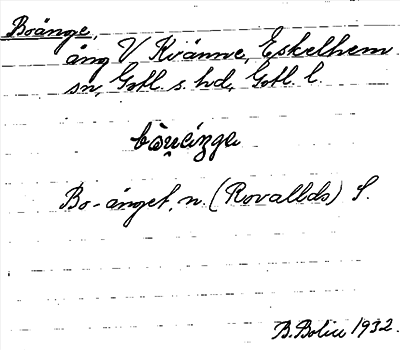 Boänge,
äng V Kvänne, Eskelhem
sn, Gotl. s. hd, Gotl. l.
Bo-änget, n. (Rovallds) S.
B. Bolin 1932.